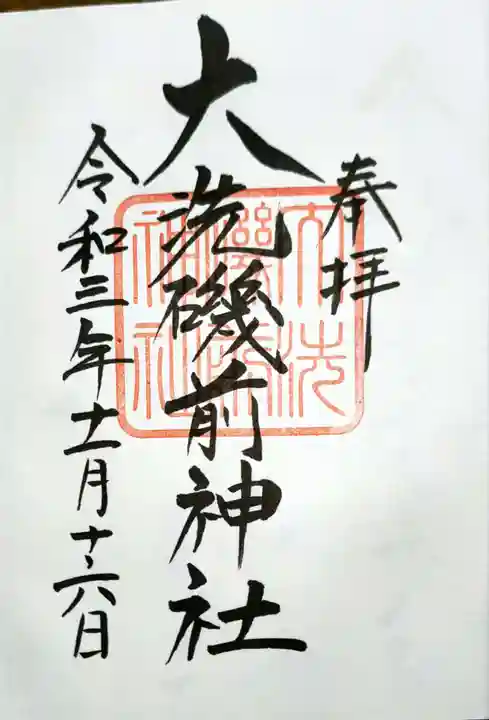 奉拝
大洗磯前神社
大洗
磯前
神社
令和三年十一月十六日